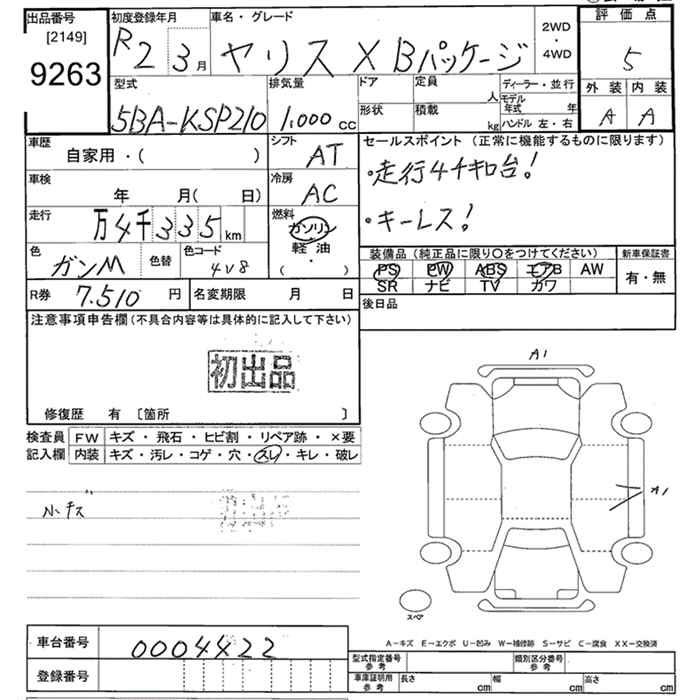 出品番号 初度登録年月 車名・グレード 評価点
[2149] 9263
R2 3月 ヤリス X Bパッケージ 2WD・4WD 5
型式 排気量 ドア 定員 人 ディーラー・並行 外装 内装
5BA-KSP210 1,000 cc 形状 積載 kg モデル年式 年 ハンドル 左・右 A A
車歴 自家用・( ) シフト AT セールスポイント (正常に機能するものに限ります)
車検 年 月( 日) 冷房 AC ・走行4千キロ台!
走行 万4千335km 燃料 ガソリン 軽油 ・ ( ) ・キーレス!
色 ガンM 色替 色コード 4V8 装備品(純正品に限り○をつけてください) 新車保証書
PS PW ABS エアB AW 有・無
SR ナビ TV カワ
R券 7.510 円 名変期限 月 日 後日品
注意事項申告欄(不具合内容等は具体的に記入して下さい)
初出品
修復歴 有 [箇所 ]
A1
検査員記入欄 FW キズ・飛石・ヒビ割・リペア跡・×要
内装 キズ・汚レ・コゲ・穴・スレ・キレ・破レ
小キズ
A1
スペア
A−キズ E−エクボ U−凹み W−補修跡 S−サビ C−腐食 XX−交換済
車台番号 0004422
登録番号
型式指定番号 参考 類別区分番号 参考
車庫証明用 参考 長さ cm 幅 cm 高さ cm